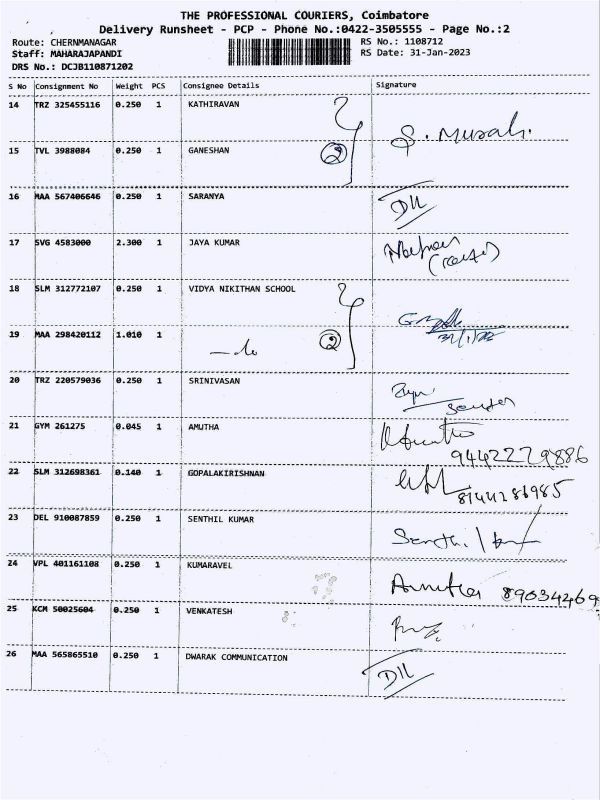 THE PROFESSIONAL COURIERS, Coimbatore
Delivery Runsheet - PCP - Phone No.:0422-3505555 - Page No.:2
Route: CHERNMANAGAR RS No.: 1108712
Staff: MAHARAJAPANDI RS Date: 31-Jan-2023
DRS No.: DCJB110871202
S No Consignment No Weight PCS Consignee Details Signature
14 TRZ 325455116 0.250 1 KATHIRAVAN
S. Murali.
15 TVL 3988084 0.250 1 GANESHAN
2
16 MAA 567406646 0.250 1 SARANYA
DIL
17 SVG 4583000 2.300 1 JAYA KUMAR
18 SLM 312772107 0.250 1 VIDYA NIKITHAN SCHOOL
19 MAA 298420112 1.010 1
2
20 TRZ 220579036 0.250 1 SRINIVASAN
21 GYM 261275 0.045 1 AMUTHA
9442279886
22 SLM 312698361 0.140 1 GOPALAKIRISHNAN
8144286985
23 DEL 910087859 0.250 1 SENTHIL KUMAR
Senthil
24 VPL 401161108 0.250 1 KUMARAVEL
Amutha 89034469
25 KCM 50025604 0.250 1 VENKATESH
26 MAA 565865510 0.250 1 DWARAK COMMUNICATION
DIL